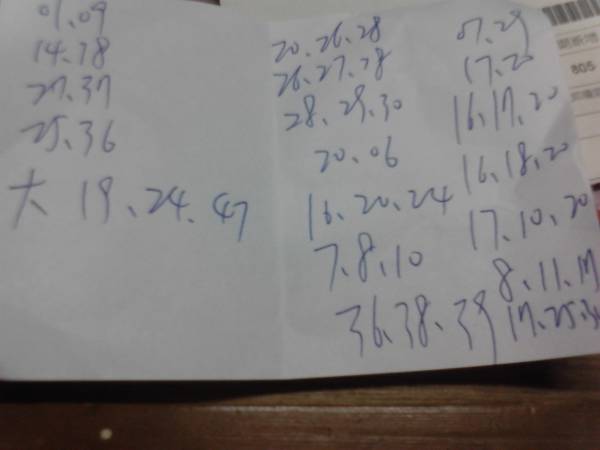 01.09
14.18
27.37
25.36
大 19、24.47
20.26.28
26.27.28
28、29.30
20.06
16.20.24
7.8.10
36.38.39
07.29
17.20
16.17.20
16.18.20
17.10.20
8.11.17
17.25.3
805